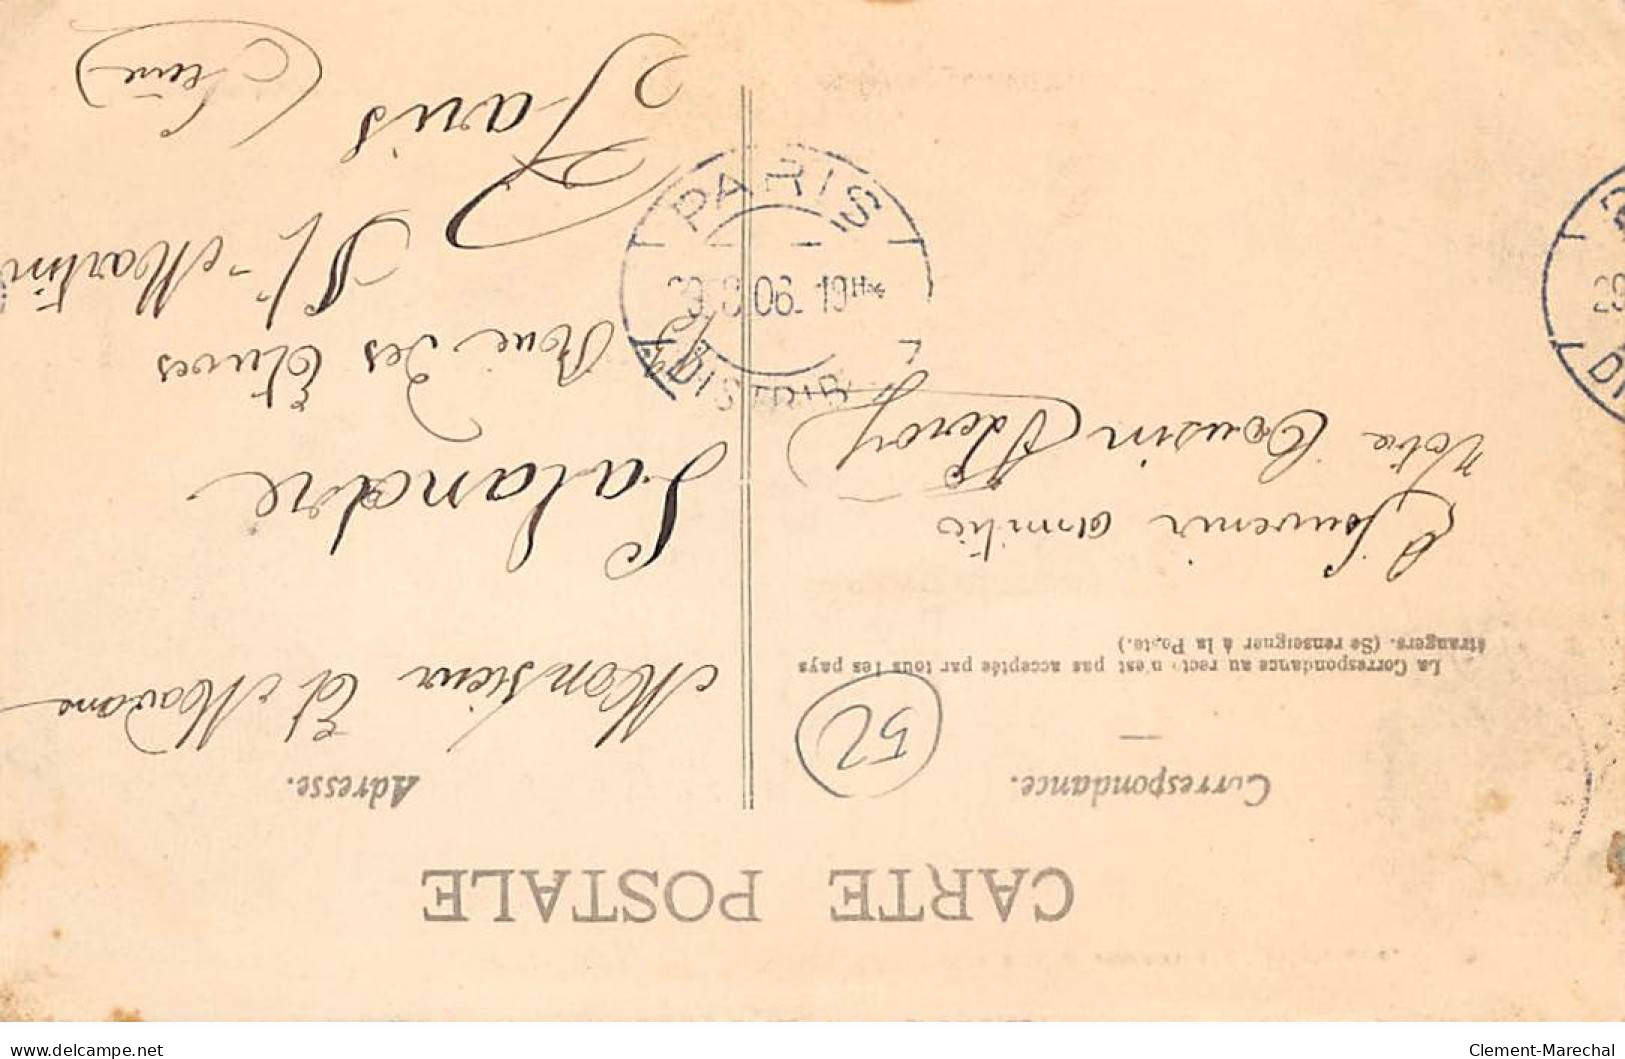 CARTE POSTALE
Correspondance.
52
La Correspondance au recto n'est pas acceptée par tous les pays
étrangers. (Se renseigner à la Poste.)
Souvenir amitié
Votre Cousin
Adresse.
Monsieur Et Madame
Lalandre
Rue des Etuves
St-Martin
Paris
(Seine)
PARIS
06 19H
DISTRIB
29
DI
delcampe.net
Clement-Marechal